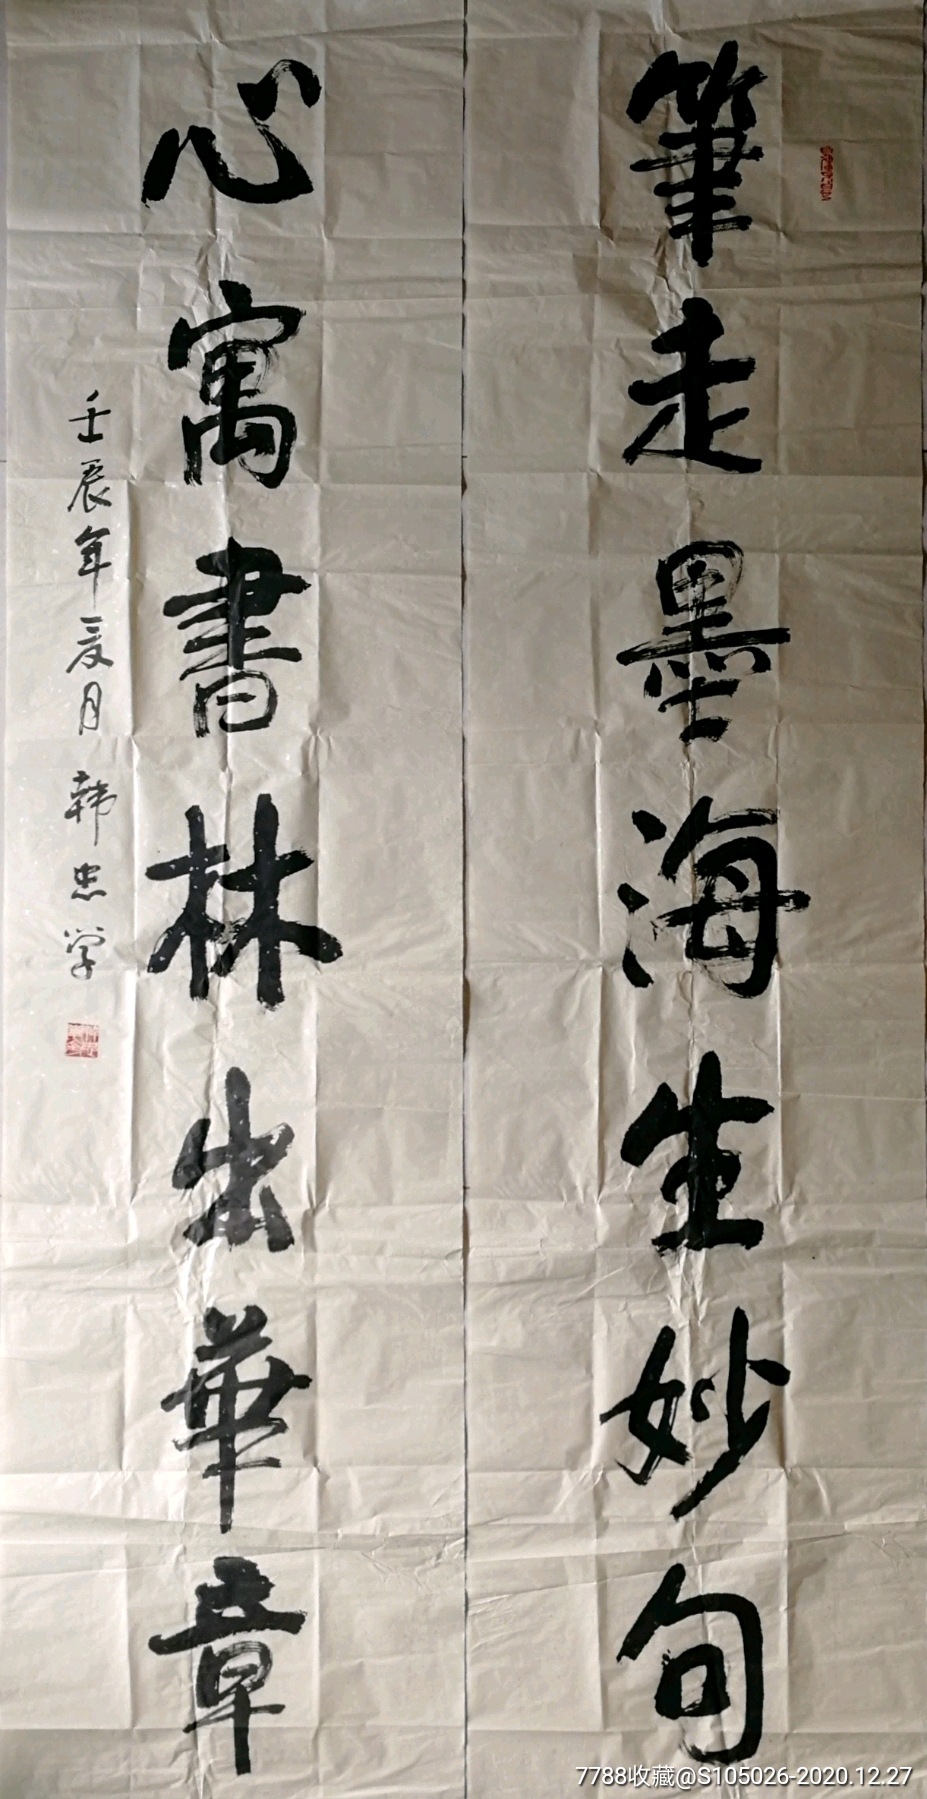 筆走墨海生妙句
心寓書林出華章
壬辰年夏月 韩忠学
7788收藏@S105026-2020.12.27